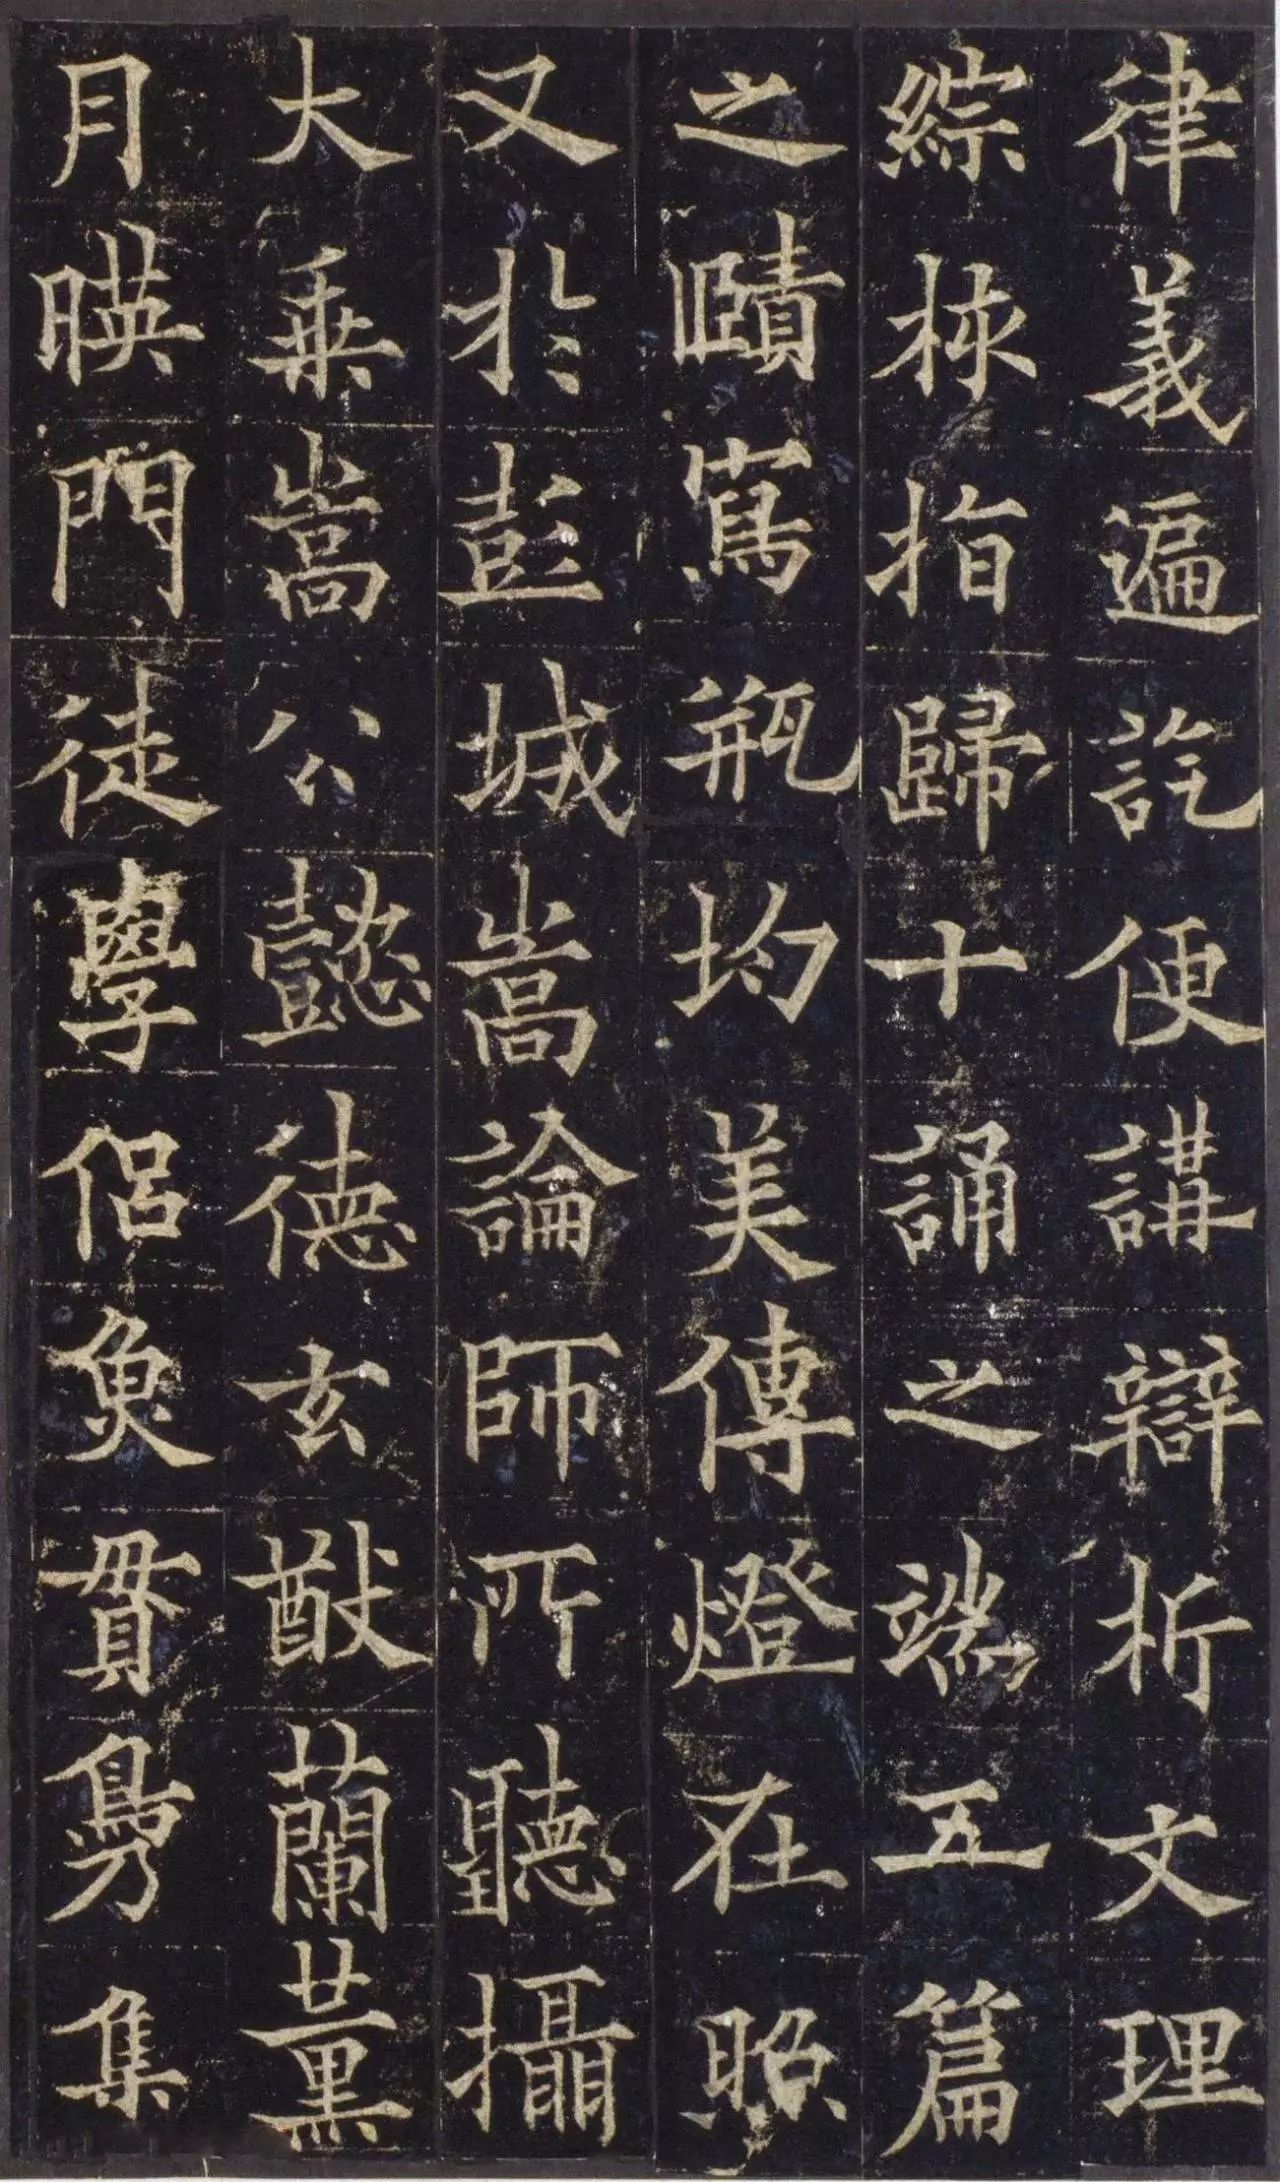 律義遍訖便講辯析文理
綜球指歸十誦之端五篇
之賾寫瓶均美傳燈在照
又於彭城嵩論師所聽攝
大乘嵩公懿德玄猷蘭薰
月暎門徒學侶魚貫鳧集